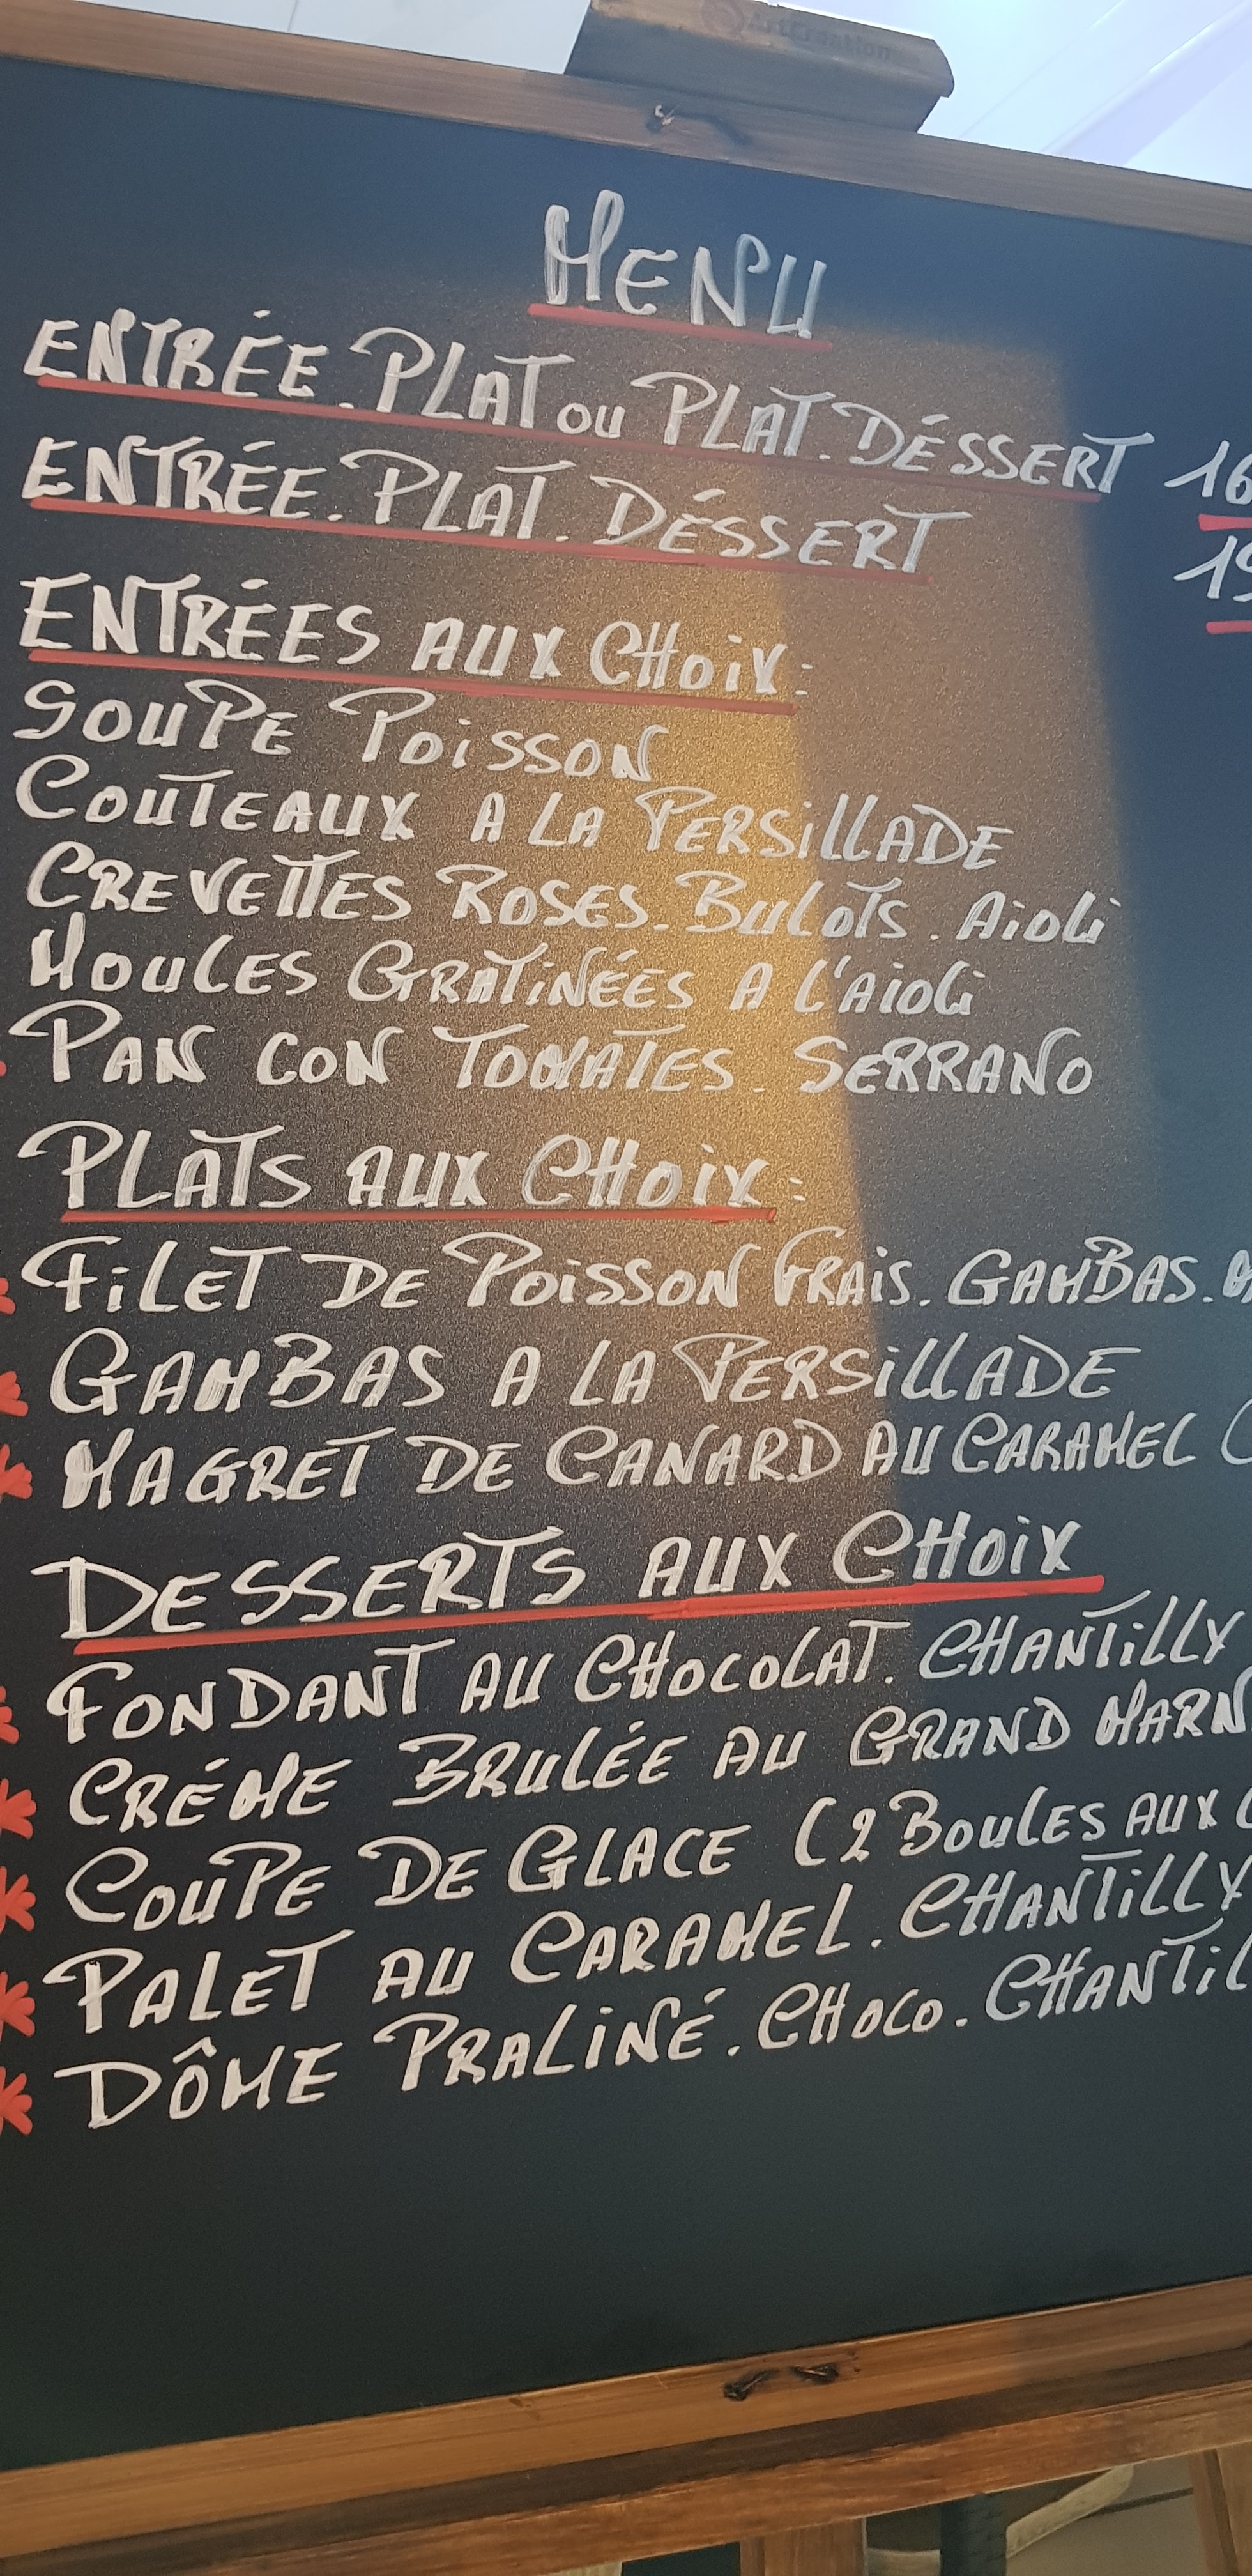 ArtCreation
MENU
ENTRÉE.PLAT OU PLAT.DÉSSERT 16
ENTRÉE.PLAT.DÉSSERT 19
ENTRÉES AUX CHOIX:
SOUPE POISSON
COUTEAUX A LA PERSILLADE
CREVETTES ROSES.BULOTS.AIOLI
MOULES GRATINÉES A L'AIOLI
PAN CON TOMATES.SERRANO
PLATS AUX CHOIX:
FILET DE POISSON FRAIS.GAMBAS.
GAMBAS A LA PERSILLADE
MAGRET DE CANARD AU CARAMEL (
DESSERTS AUX CHOIX
FONDANT AU CHOCOLAT.CHANTILLY
CRÉME BRULÉE AU GRAND MARN
COUPE DE GLACE (2 BOULES AUX C
PALET AU CARAMEL.CHANTILLY
DÔME PRALINÉ.CHOCO.CHANTIL